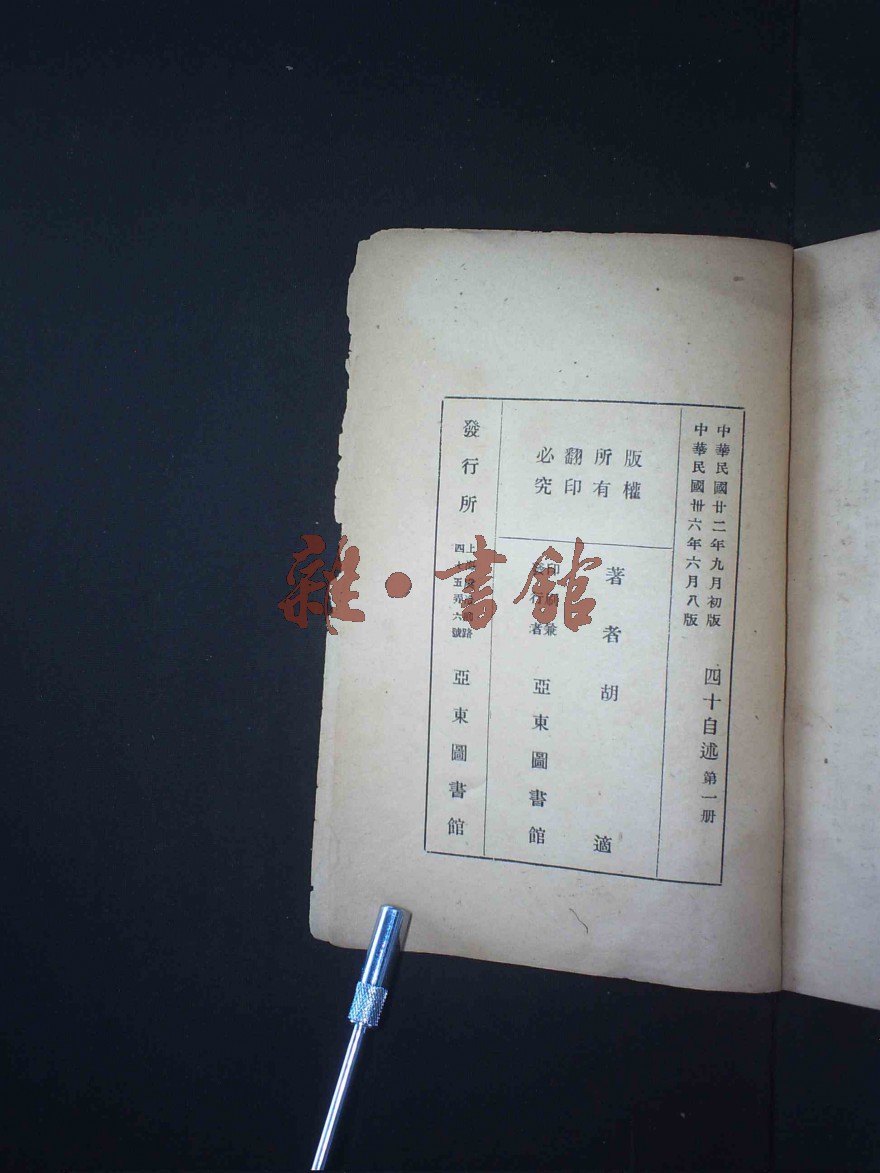 中華民國廿二年九月初版
中華民國卅六年六月八版
四十自述 第一册
版權
所有
翻印
必究
著者 胡適
亞東圖書館
發行所
四十五弄六號
亞東圖書館
雜·書館